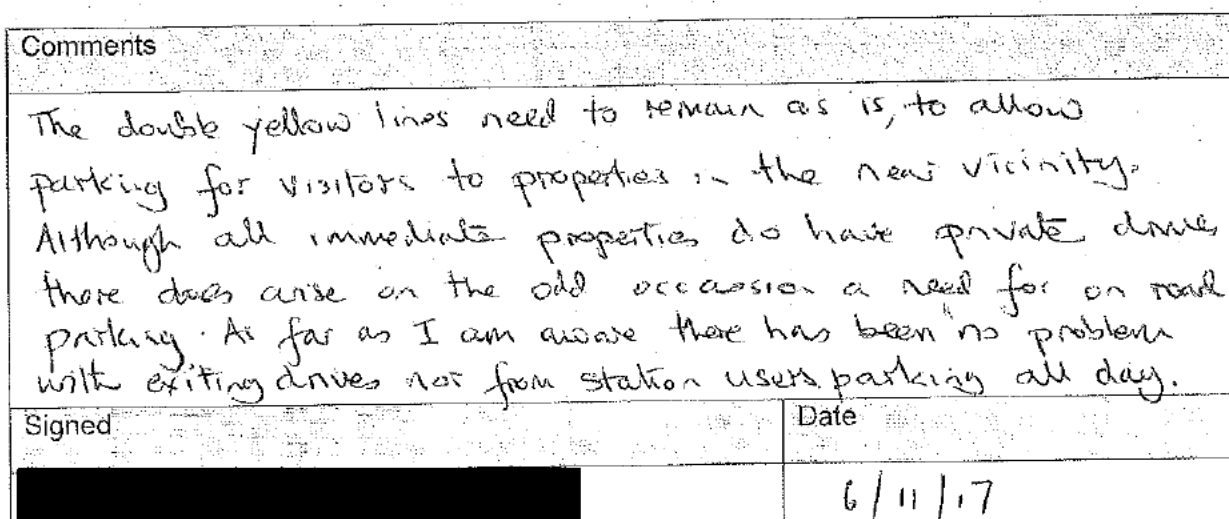 Comments
The double yellow lines need to remain as is, to allow
parking for visitors to properties in the near vicinity.
Although all immediate properties do have private drives
there does arise on the odd occassion a need for on road
parking. As far as I am aware there has been no problem
with exiting drives nor from station users parking all day.
Signed
Date
6/11/17